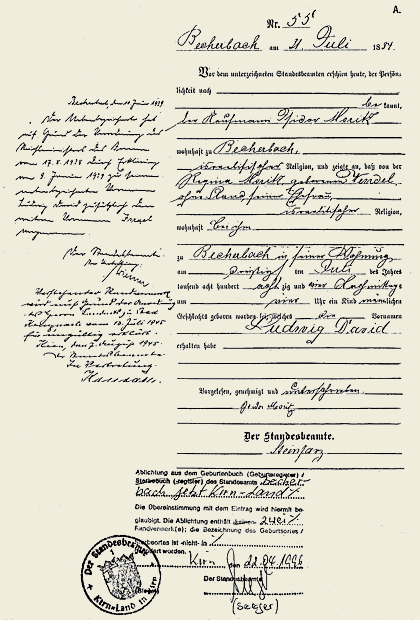 A.
Nr. 55
Becherbach am 21. Juli 18
Vor dem unterzeichneten Standesbeamten erschien heute, der Persön-
lichkeit nach
be kannt,
der Kaufmann Isidor Moritz
wohnhaft zu Becherbach,
israelitischer Religion, und zeigte an, daß von der
Regina Moritz geborenen Vendel
seiner Ehefrau,
israelitischer Religion,
wohnhaft bei ihm
zu Becherbach in seiner Wohnung
am ten Juli des Jahres
tausend acht hundert achtzig und vier Nachmittags
um vier Uhr ein Kind männlichen
Geschlechts geboren worden sei, welches die Vornamen
Ludwig David
erhalten habe
Vorgelesen, genehmigt und unterschrieben
Isidor Moritz
Der Standesbeamte.
Becherbach, den Januar 1939
Der Unterzeichnete hat
auf Grund der Verordnung des
Reichsministers des Innern
vom 17. 8. 1938 durch Erklärung
vom Januar 1939 zu seinem
unterzeichneten Vornamen
den
weiteren Vornamen Israel
angenommen.
Der Standesbeamte.
In Vertretung
Vorstehender Randvermerk
wird auf Grund der Anordnung
des Herrn Landrats zu Bad
Kreuznach vom 10. Juli 1945
für ungültig erklärt.
Kirn, den 7. August 1945.
Der Standesbeamte
In Vertretung:
Ablichtung aus dem Geburtenbuch (Geburtsregister) /
Sterbebuch (-register) des Standesamts Becher-
bach jetzt Kirn-Land /
Die Übereinstimmung mit dem Eintrag wird hiermit be-
glaubigt. Die Ablichtung enthält keinen zwei /
Randvermerk(e); die Bezeichnung des Geburtsortes /
Sterbeortes ist nicht in /
geändert worden.
Kirn, den 22.04.1996
Der Standesbeamte
(Seeger)
(Siegel)
Der Standesbeamte
Kirn-Land in Kirn